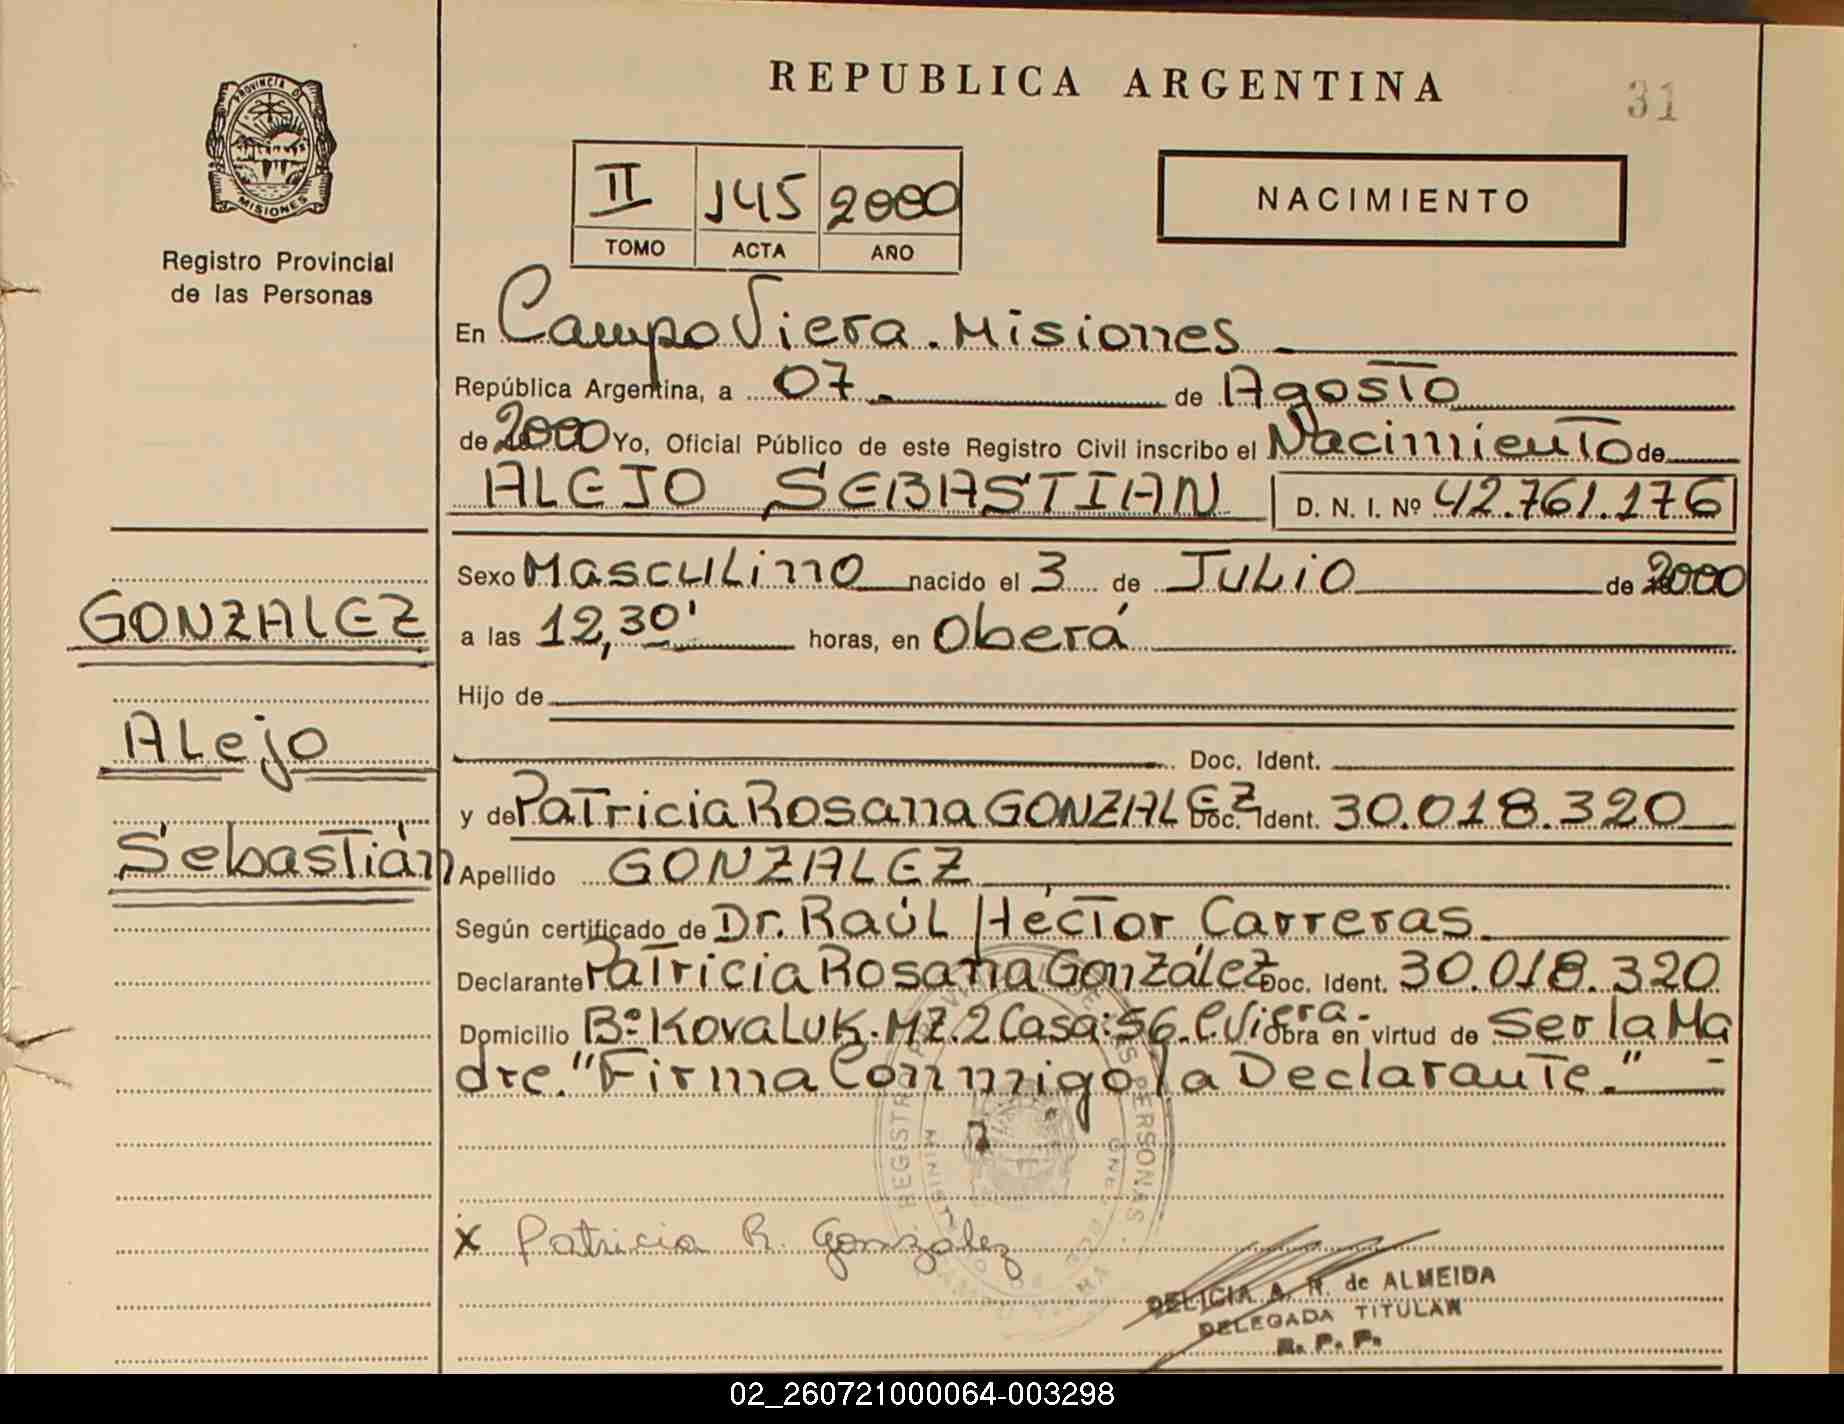 REPUBLICA ARGENTINA
31
PROVINCIA D
MISIONES
Registro Provincial
de las Personas
II 145 2000
TOMO ACTA AÑO
NACIMIENTO
En Campo Viera. Misiones
República Argentina, a 07 de Agosto
de 2000 Yo, Oficial Público de este Registro Civil inscribo el Nacimiento de
ALEJO SEBASTIAN D. N. I. Nº 42.761.176
Sexo Masculino nacido el 3 de Julio de 2000
a las 12,30' horas, en Oberá
Hijo de
Doc. Ident.
y de Patricia Rosana GONZALEZ Doc. Ident. 30.018.320
Apellido GONZALEZ
Según certificado de Dr. Raúl Héctor Carreras
Declarante Patricia Rosana González Doc. Ident. 30.018.320
Domicilio Bº Kovaluk. MZ. 2 Casa: 56. C. Viera - Obra en virtud de Ser la Ma
dre. "Firma Conmigo la Declarante."
GONZALEZ
Alejo
Sebastián
x Patricia R. González
DELICIA A. R. de ALMEIDA
DELEGADA TITULAR
R. P. P.
02_260721000064-003298